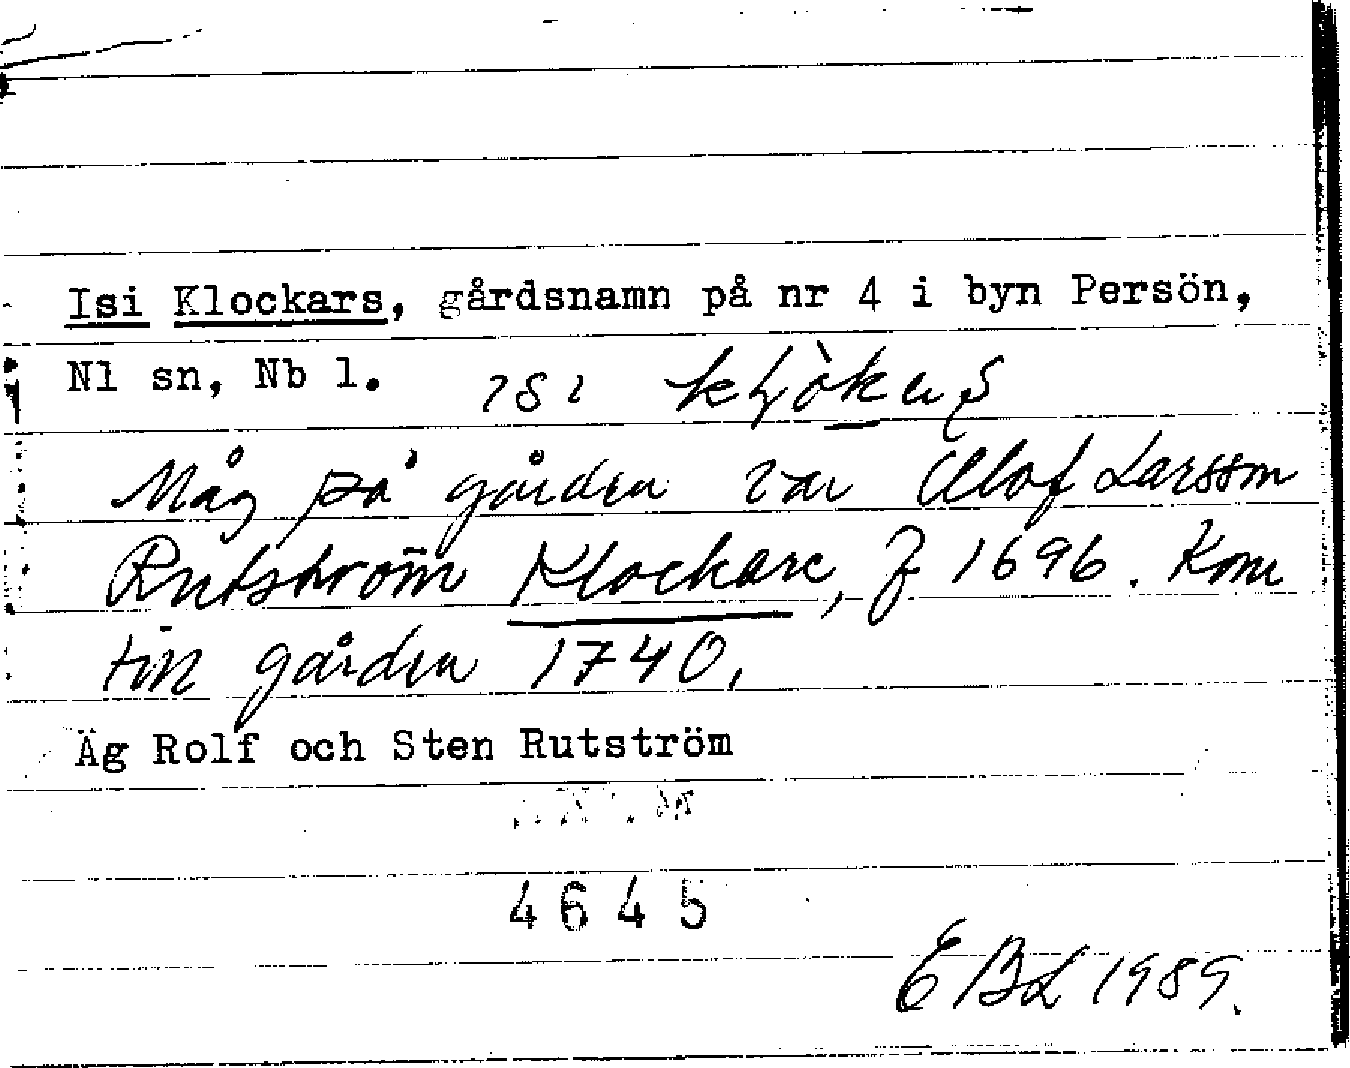 Isi Klockars, gårdsnamn på nr 4 i byn Persön,
Nl sn, Nb l. ısı
Måg på gården var Olof Larsson
Rutström Klockare, f 1696. Kom
till gården 1740.
Äg Rolf och Sten Rutström
4645
EBL 1989.